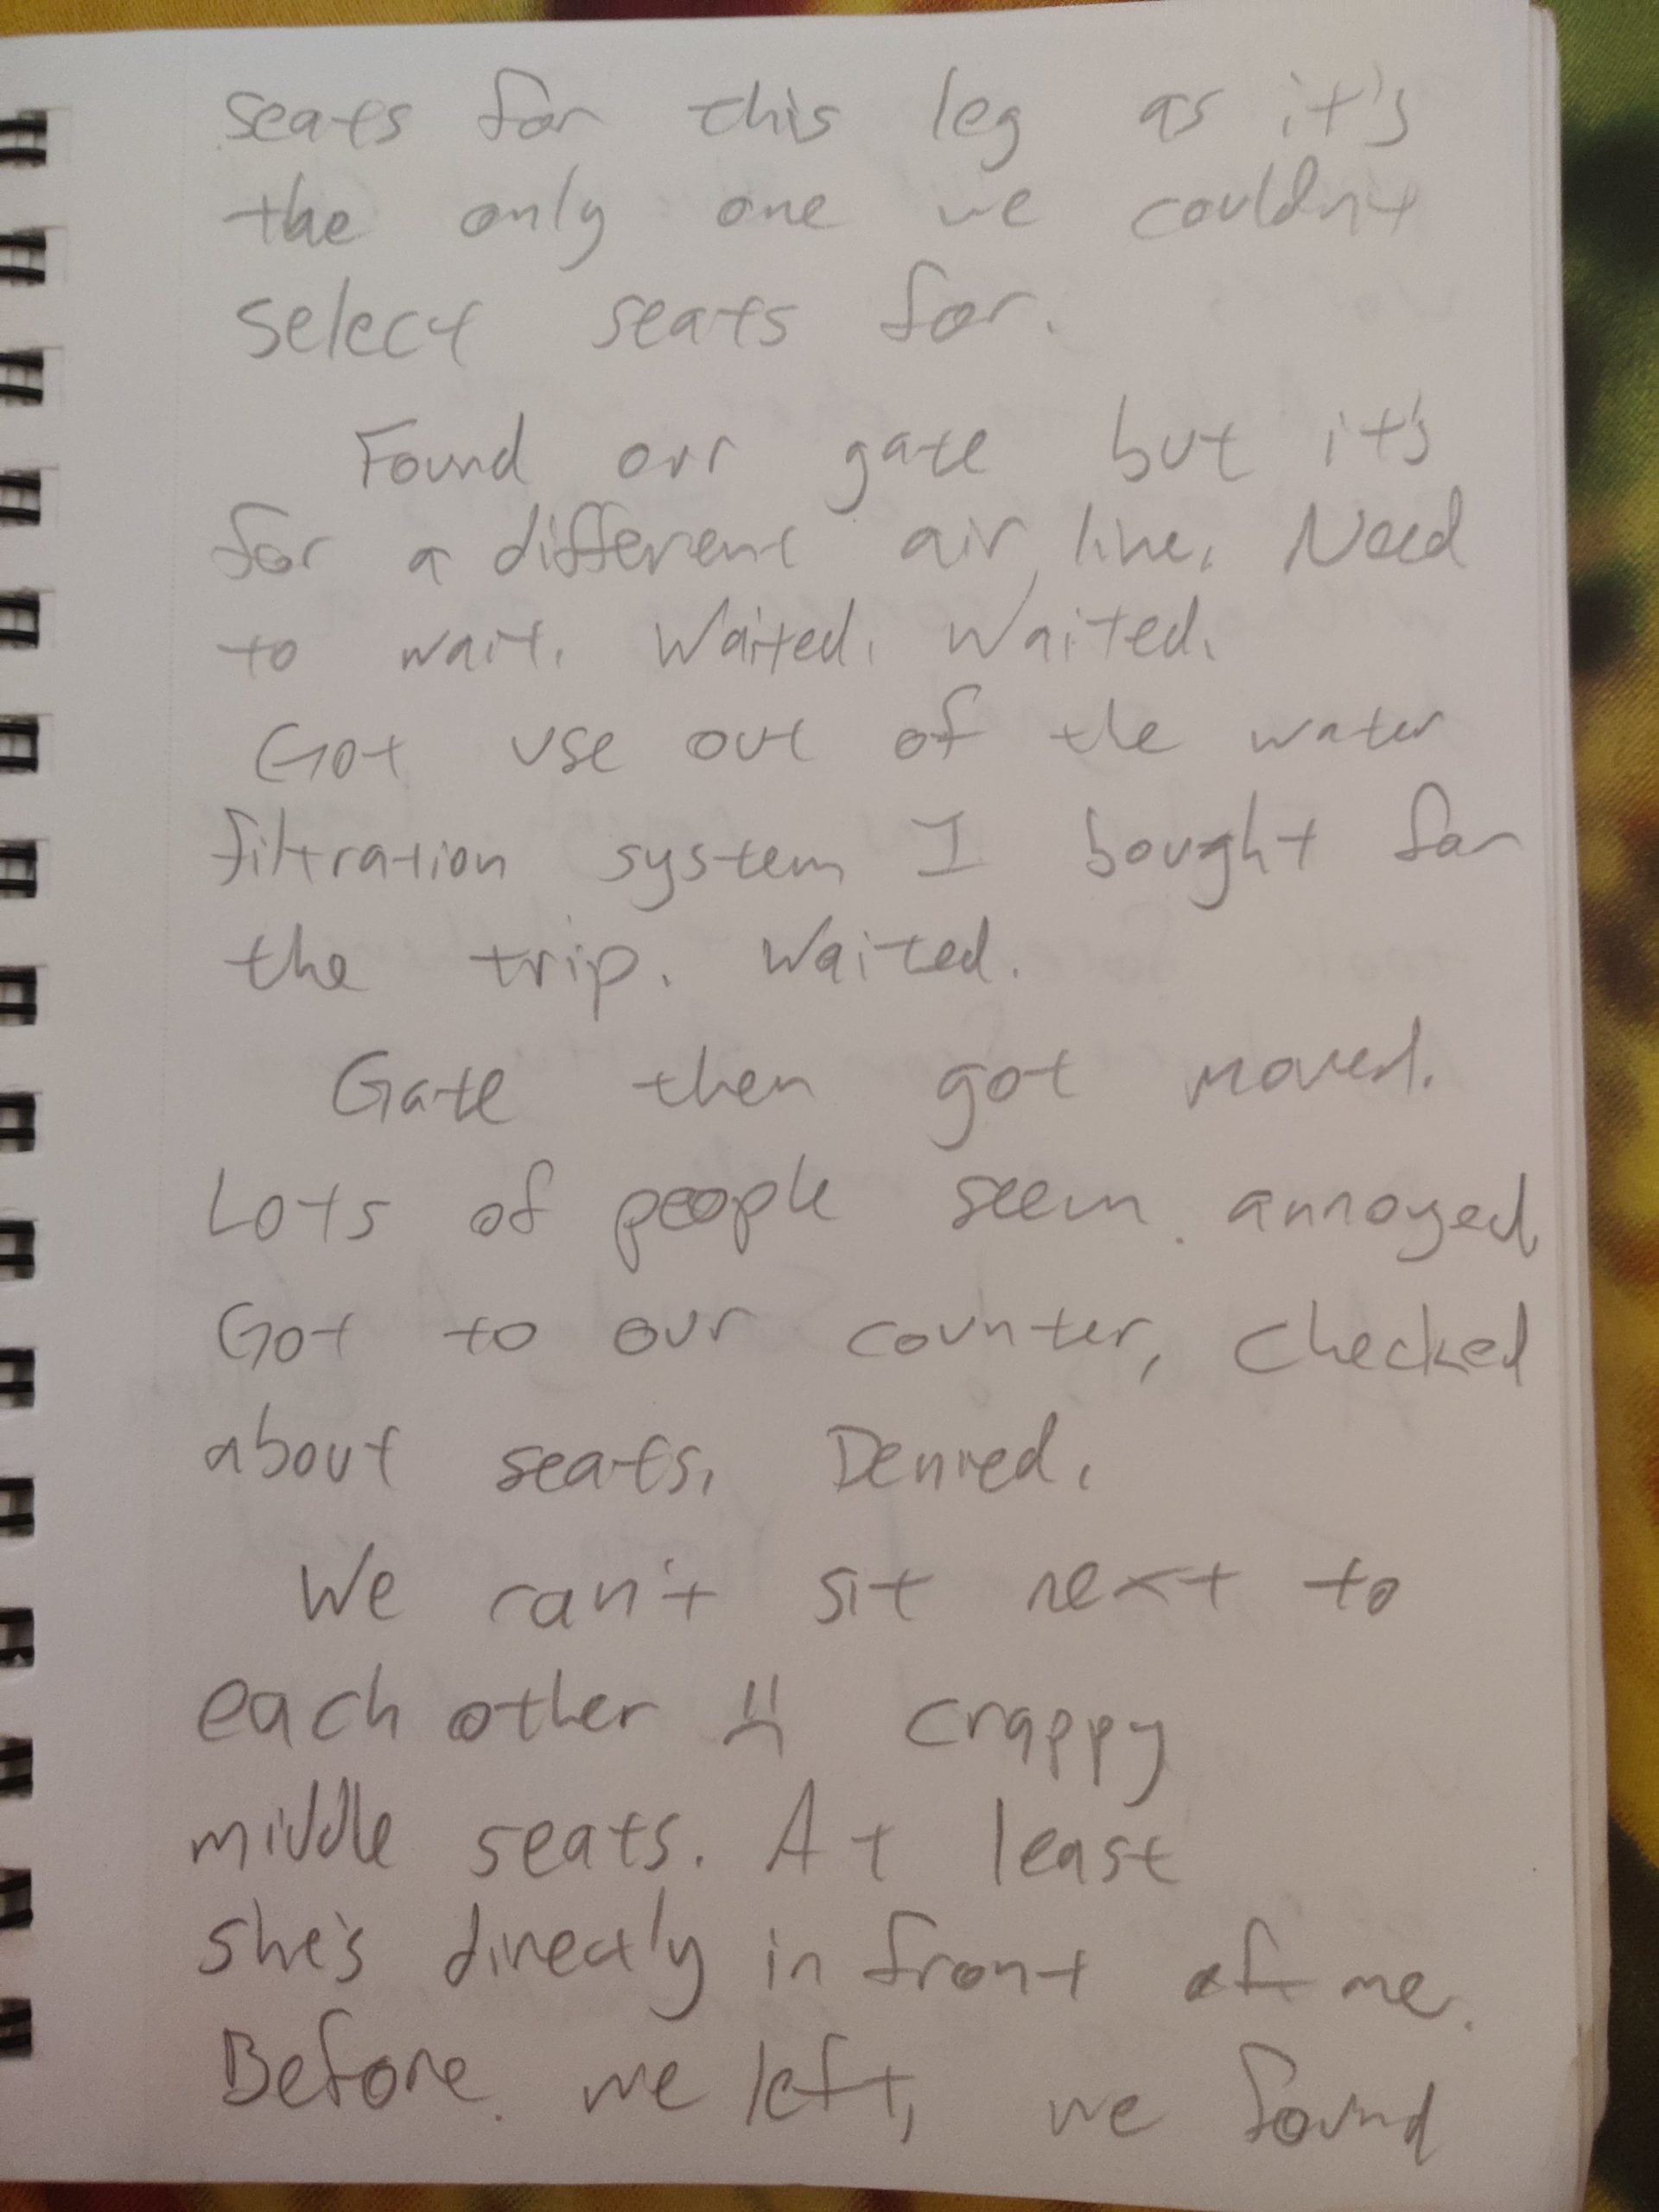 seats for this leg as it's
the only one we couldn't
select seats for.
Found our gate but it's
for a different air line. Need
to wait. Waited. Waited.
Got use out of the water
filtration system I bought for
the trip. Waited.
Gate then got moved.
Lots of people seem annoyed.
Got to our counter, checked
about seats. Denied.
We can't sit next to
each other :( crappy
middle seats. At least
she's directly in front of me.
Before we left, we found